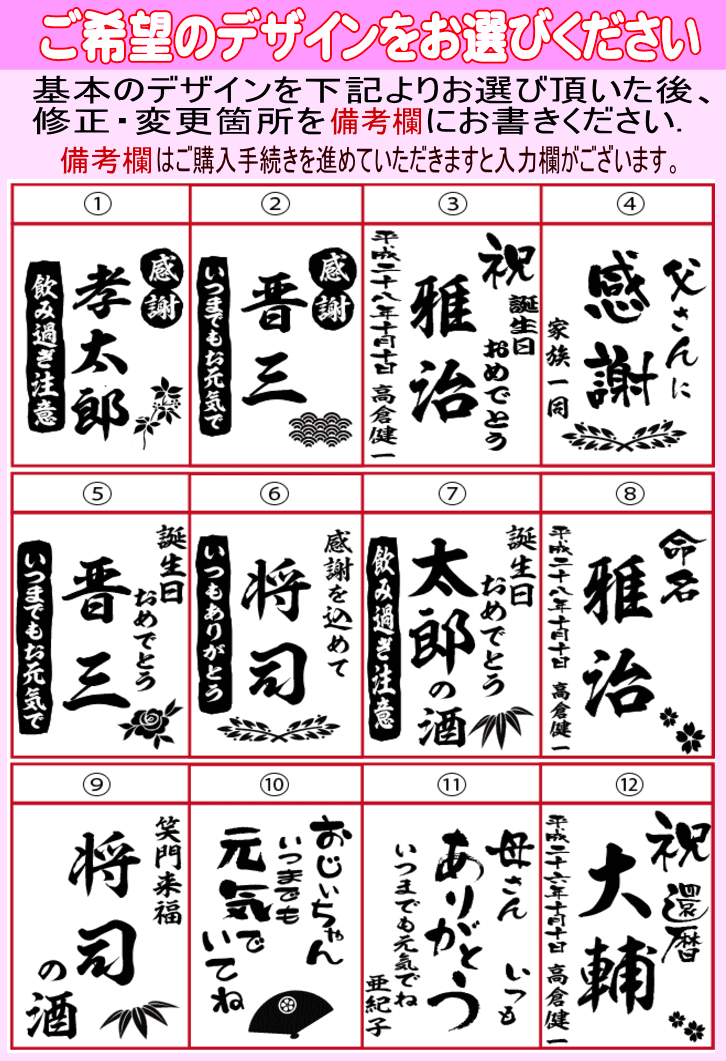 ご希望のデザインをお選びください
基本のデザインを下記よりお選び頂いた後、
修正・変更箇所を備考欄にお書きください.
備考欄はご購入手続きを進めていただきますと入力欄がございます。
①
感謝
孝太郎
飲み過ぎ注意
②
感謝
晋三
いつまでもお元気で
③
祝
誕生日
おめでとう
雅治
平成二十八年十月十日 高倉健一
④
父さんに
感謝
家族一同
⑤
誕生日
おめでとう
晋三
いつまでもお元気で
⑥
感謝を込めて
将司
いつもありがとう
⑦
誕生日
おめでとう
太郎の酒
飲み過ぎ注意
⑧
命名
雅治
平成二十八年十月十日 高倉健一
⑨
笑門来福
将司
の酒
⑩
おじいちゃん
いつまでも
元気で
いてね
⑪
母さん いつも
ありがとう
いつまでも元気でね
亜紀子
⑫
祝 還暦
大輔
平成二十六年十月十日 高倉健一